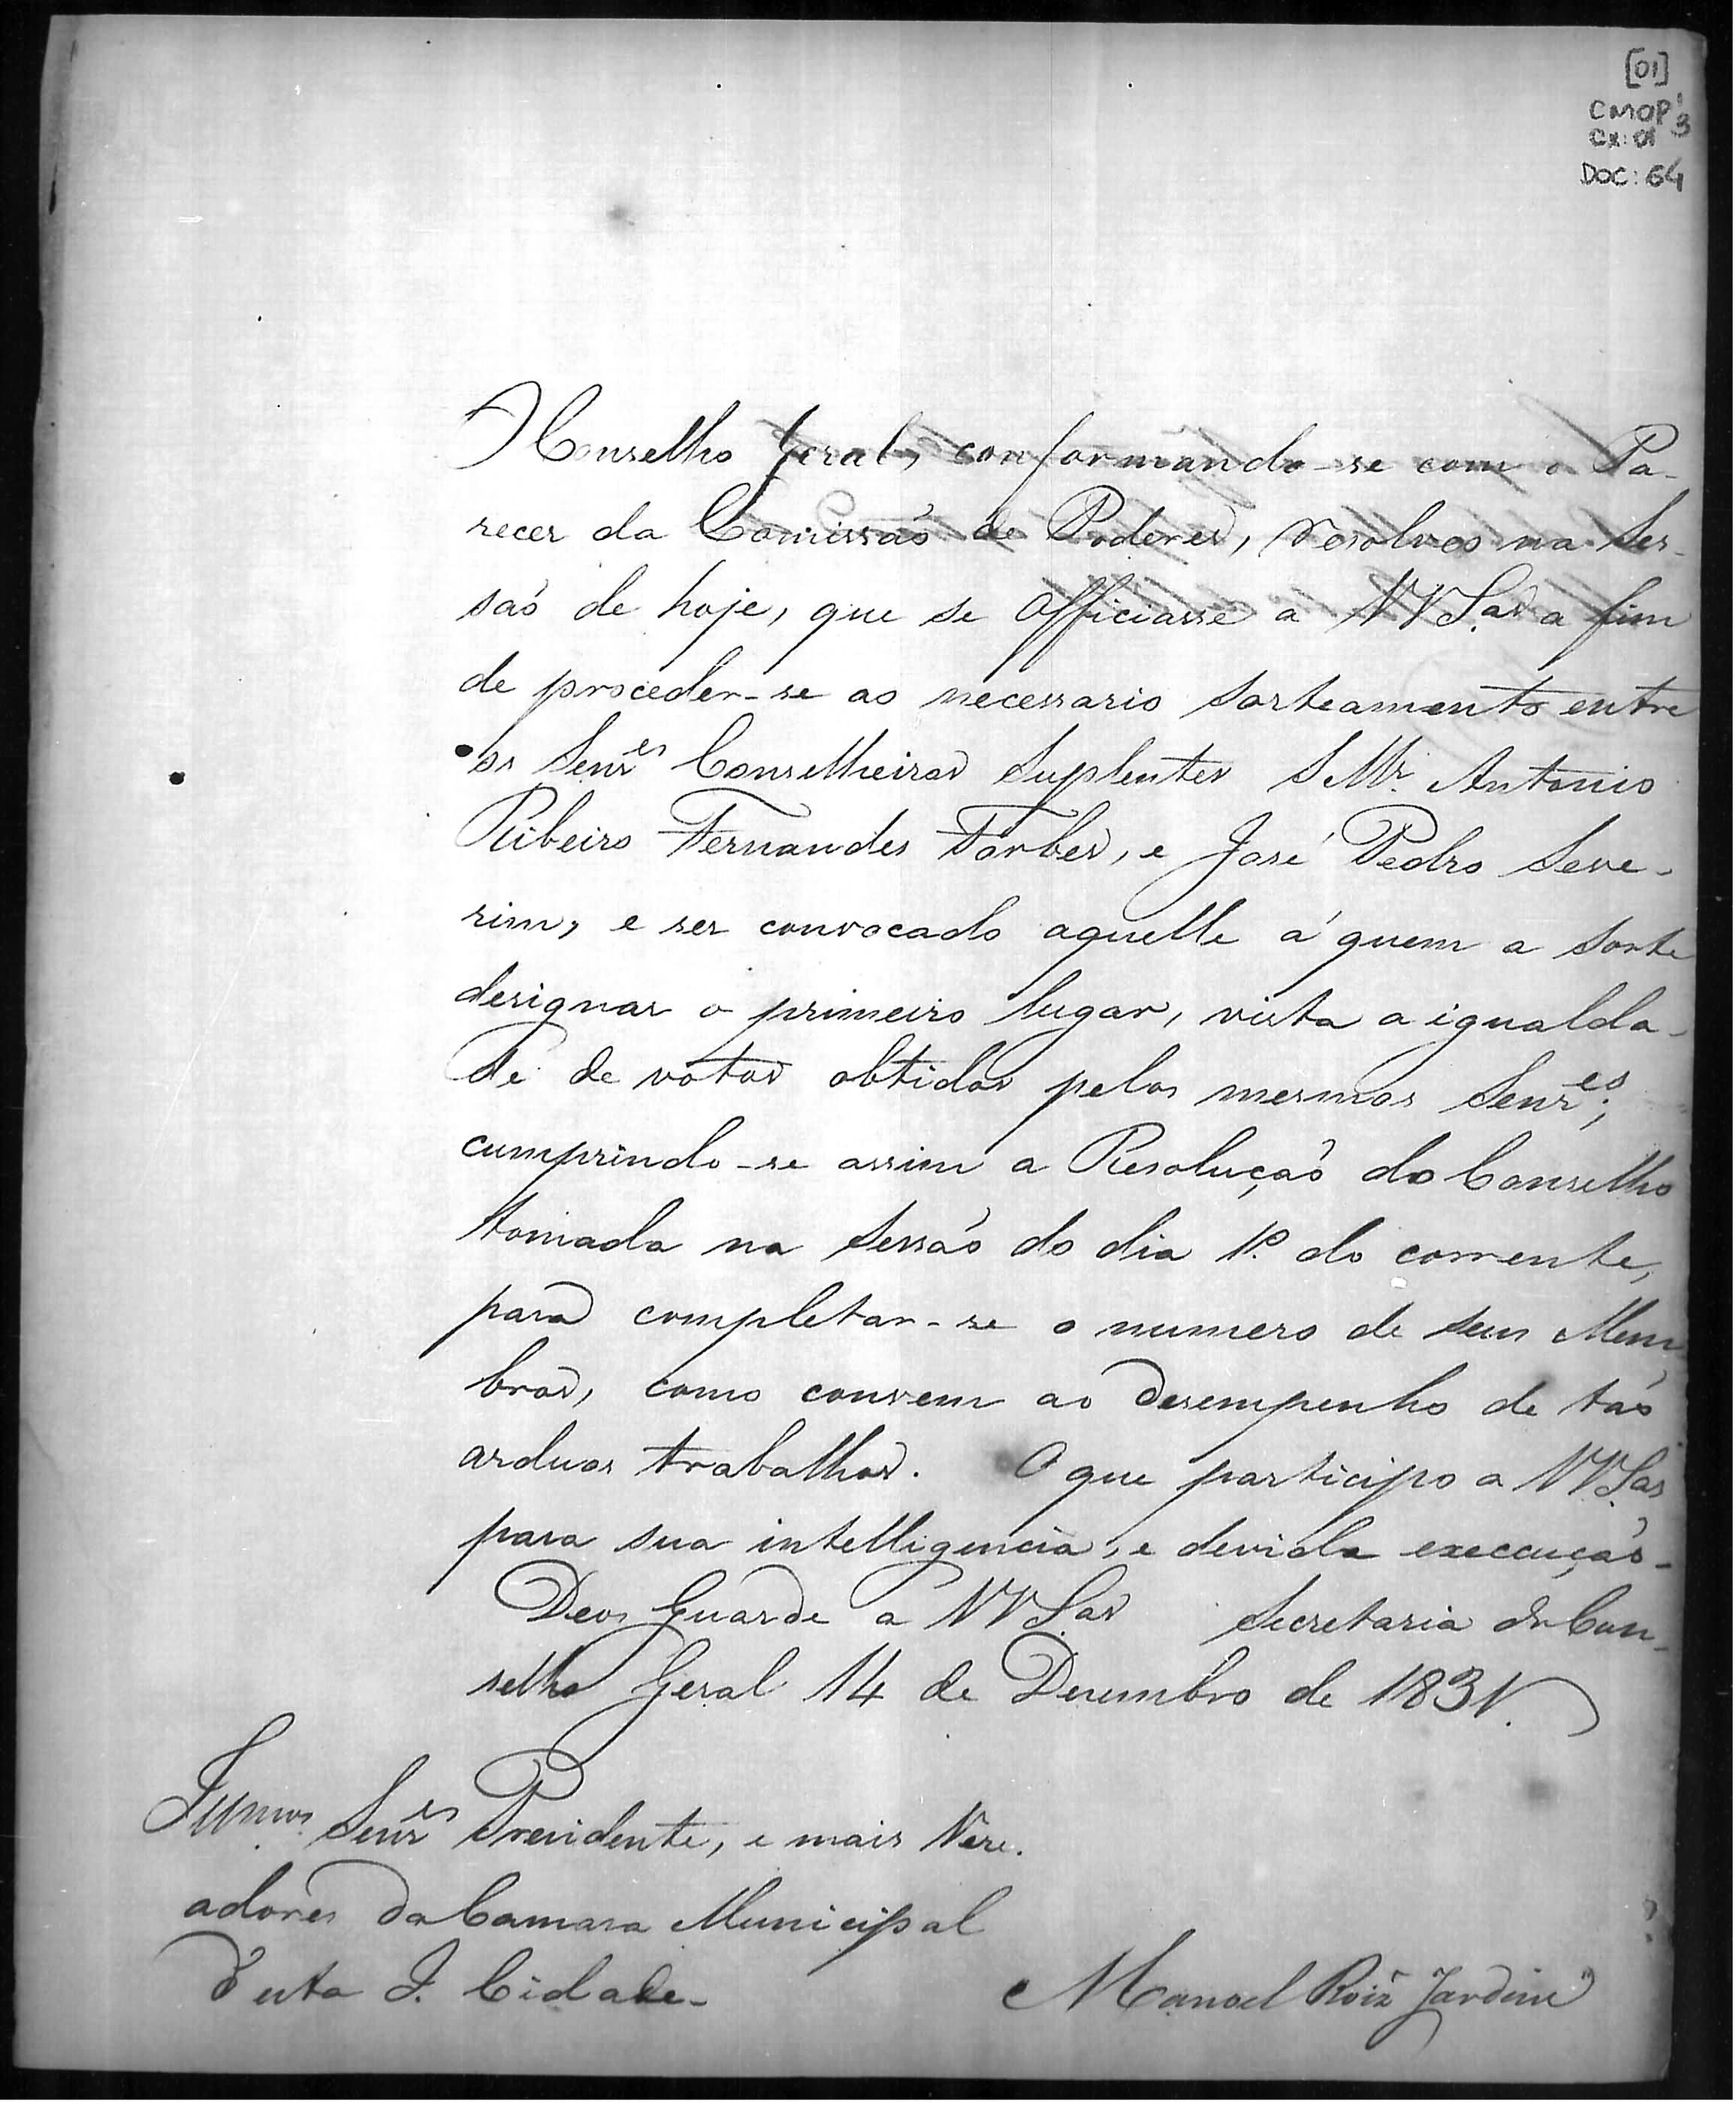 [01]
CMOP 3
CX: 01
DOC: 64
O Conselho Geral, conformando-se com o Pa-
recer da Comissaõ de Poderes, resolveo na Ses-
saõ de hoje, que se officiasse a VV S.as a fim
de proceder-se ao necessario sorteamento entre
os Senr.es Conselheiros Suplentes Antonio
Ribeiro Fernandes Forbes, e José Pedro Seve-
rim, e ser convocado aquelle á quem a sorte
designar o primeiro lugar, vista a igualda-
de de votos obtidos pelos mesmos Senr.es;
cumprindo-se assim a Resoluçaõ do Conselho
tomada na Sessaõ do dia 1.º do corrente,
para completar-se o numero de seus Mem
bros, como convem ao desempenho de taõ
arduos trabalhos. O que participo a VV S.as
para sua intelligencia, e devida execcuçaõ-
Deos Guarde a VV S.as Secretaria do Con-
selho Geral 14 de Dezembro de 1831.
Illmos. Senr.es Prezidente, e mais Vere-
adores da Camara Municipal
d'esta I. Cidade-
Manoel Roiz Jardim